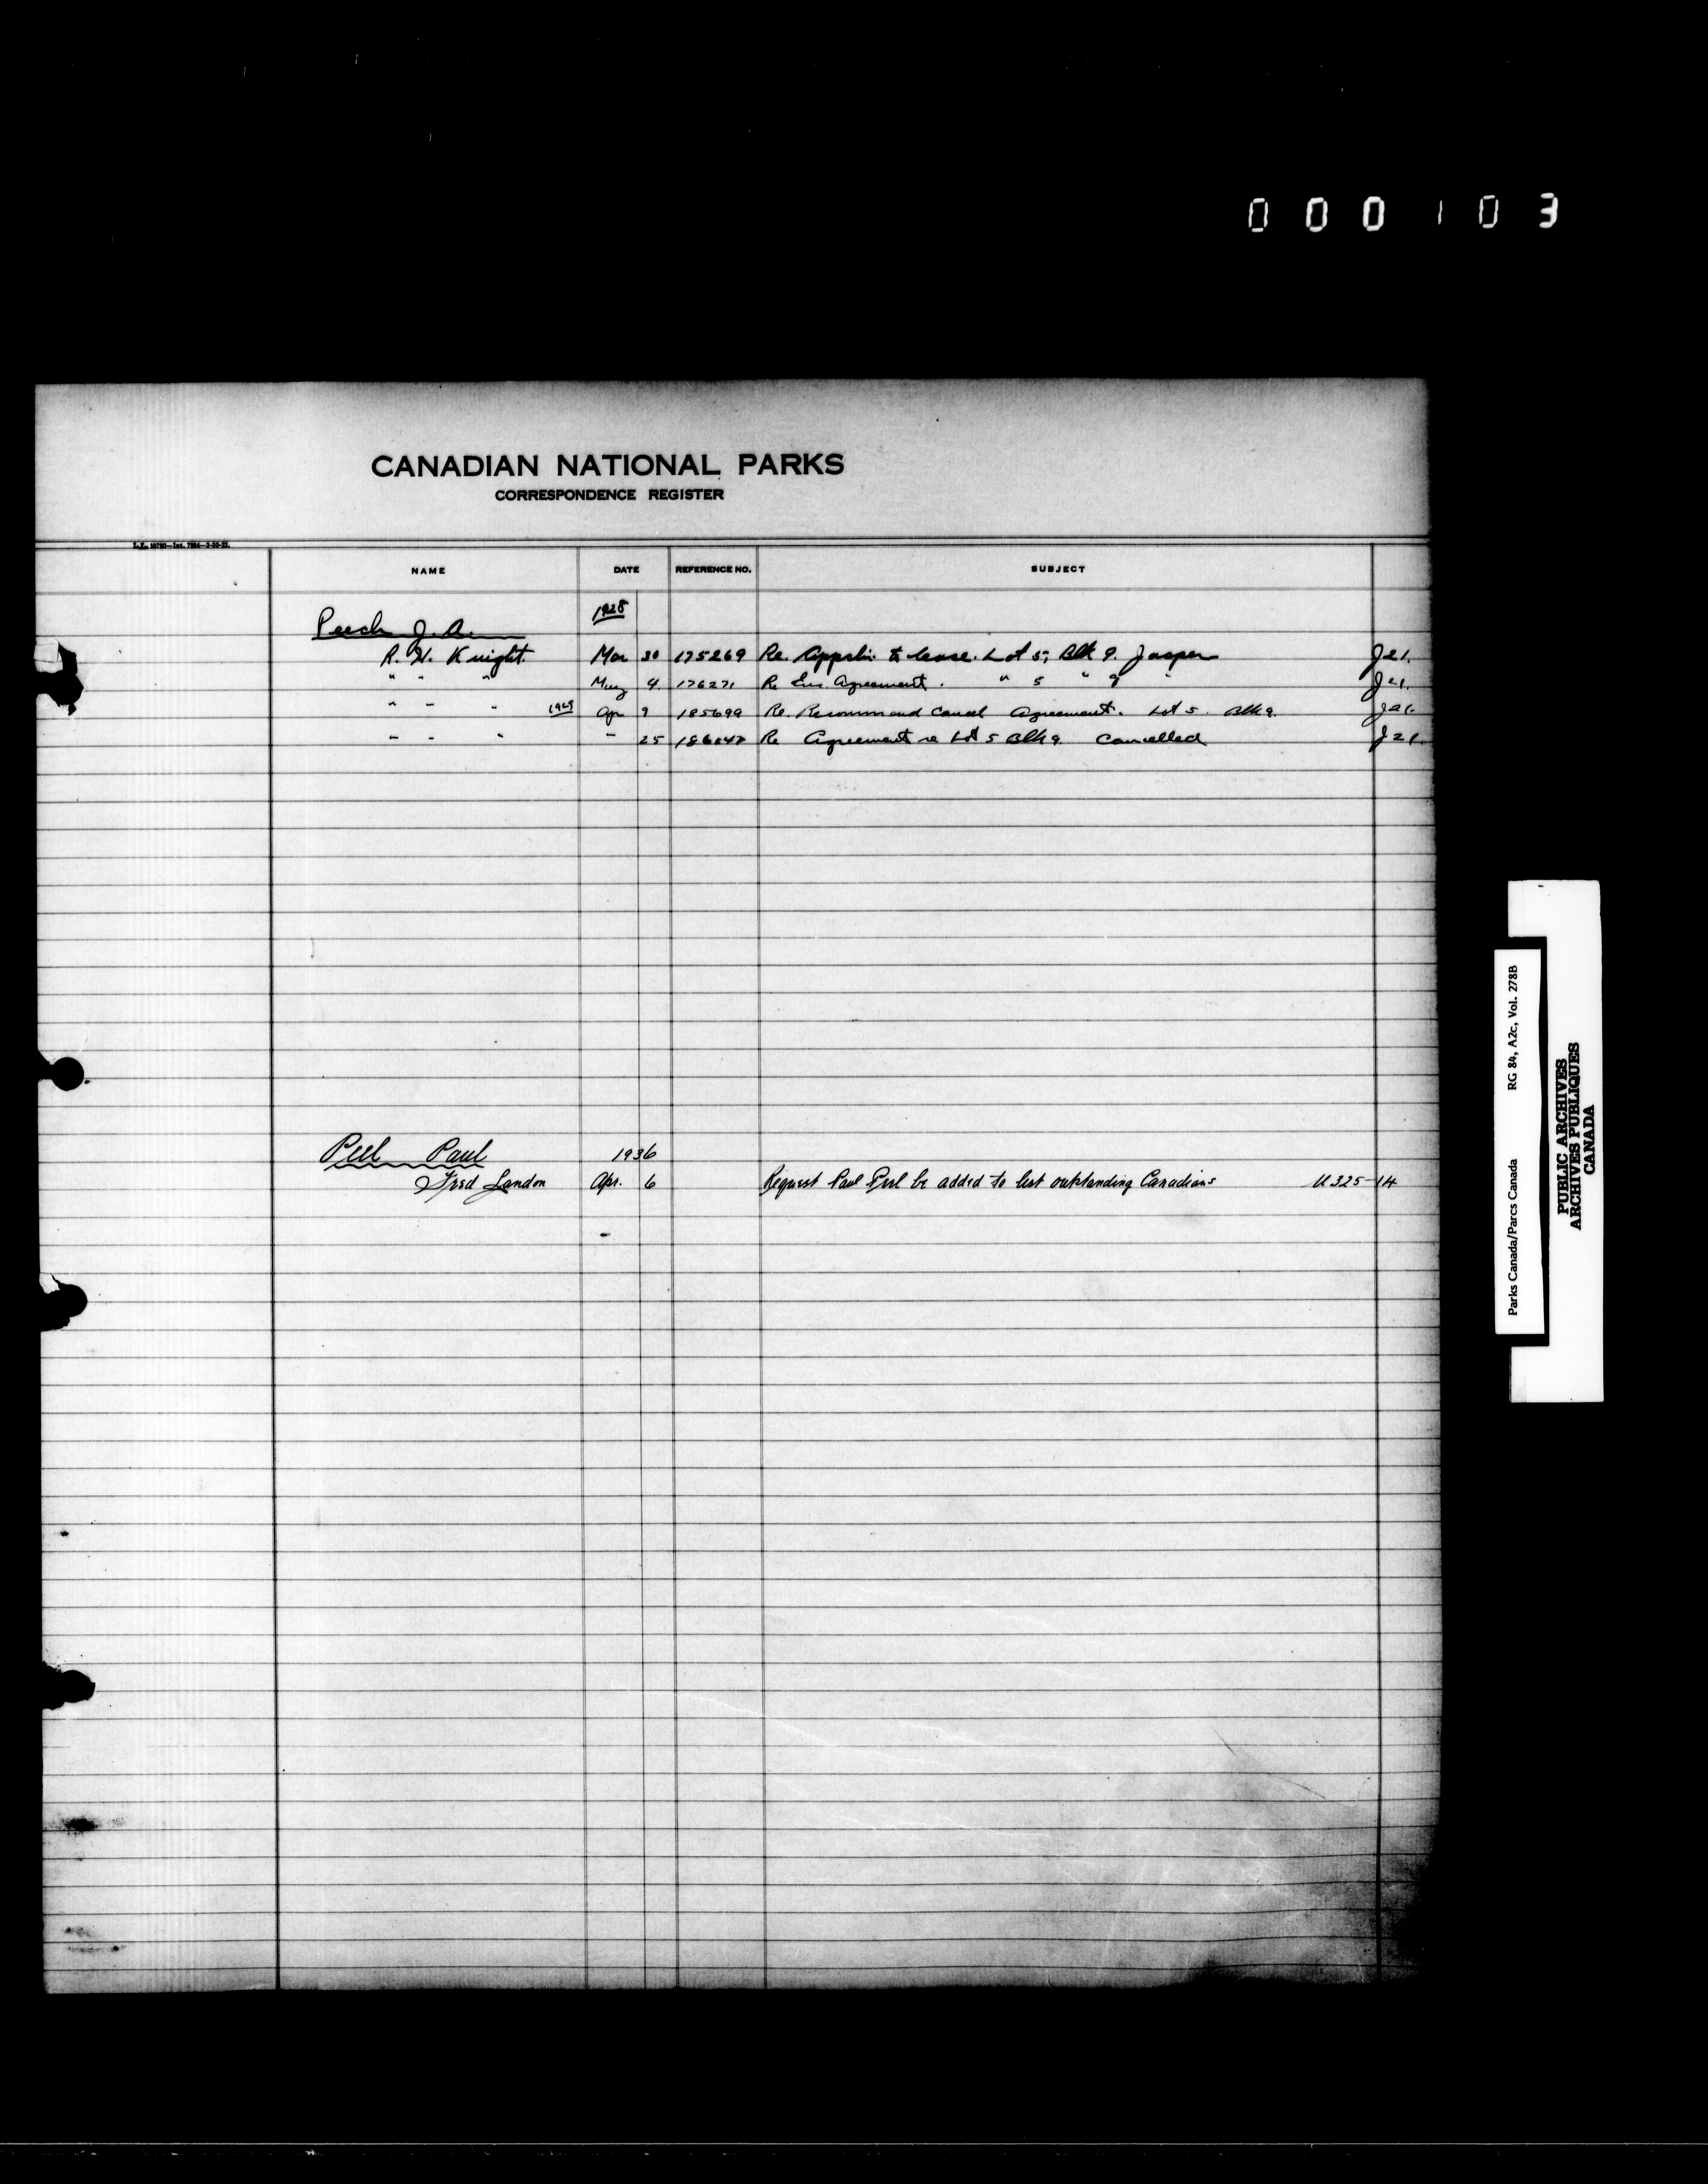 000103
CANADIAN NATIONAL PARKS
CORRESPONDENCE REGISTER
NAME DATE REFERENCE NO. SUBJECT
Peech J. A. 1928
R. H. Knight. Mar 30 175269 Re. Applin. to lease. Lot 5, Blk 9. Jasper J21.
" " " May 4 176271 Re Agreement. " 5 " 9 " J21.
" " " 1929 Apr 9 185699 Re. Recommend cancel Agreement. Lot 5. Blk 9. J21.
" " " " 25 186047 Re Agreement re Lot 5 Blk 9. Cancelled J21.
Peel Paul 1936
Fred Landon Apr. 6 Request Paul Peel be added to list outstanding Canadians U325-14
Parks Canada/Parcs Canada RG 84, A2c, Vol. 278B
PUBLIC ARCHIVES
ARCHIVES PUBLIQUES
CANADA